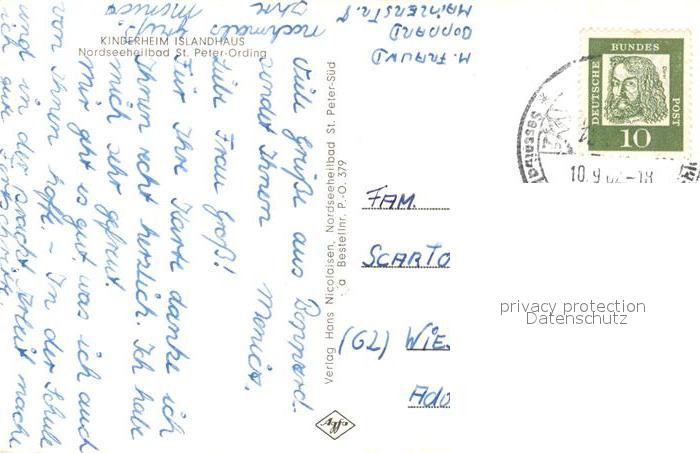 KINDERHEIM ISLANDHAUS
Nordseeheilbad St. Peter-Ording
Viele Grüße aus Boppard
sendet Ihnen Monica.
Liebe Frau Groß!
Für Ihre Karte danke ich
Ihnen recht herzlich. Ich habe
mich sehr gefreut.
Mir geht es gut was ich auch
von Ihnen hoffe. – In der Schule
und in der Arbeit mache
ich gute Fortschritte.
nochmals
Ihre Monica
M. FRAUND
BOPPARD
MAINZERSTR.
Verlag Hans Nicolaisen, Nordseeheilbad St. Peter-Süd
a Bestellnr. P.-O. 379
Agfa
DEUTSCHE BUNDESPOST
10
10.9.62-18
FAM.
SCARTO
(62) WIE
ADO
privacy protection
Datenschutz